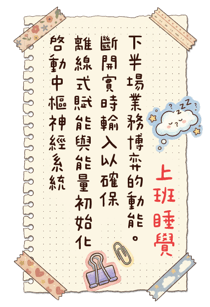 下半場業務博弈的動能。
斷開實時輸入以確保
離線式賦能與能量初始化
啓動中樞神經系統
上班睡覺
zzZ